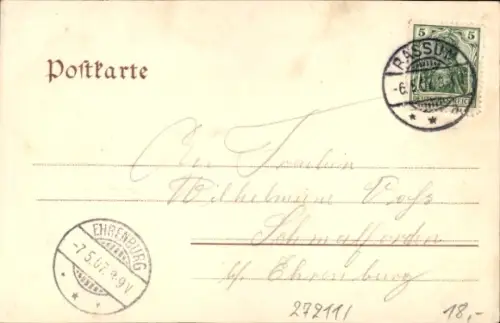 5 5
BASSUM
-6.5.07.
Postkarte
An Fräulein
Wilhelmine Voß
Schmalförden
b/ Ehrenburg
EHRENBURG
-7.5.07. 8-9V
272111
18,-